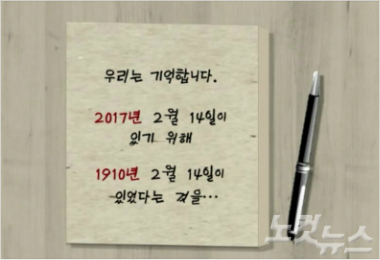 우리는 기억합니다.
2017년 2월 14일이
있기 위해
1910년 2월 14일이
있었다는 것을...
노컷뉴스